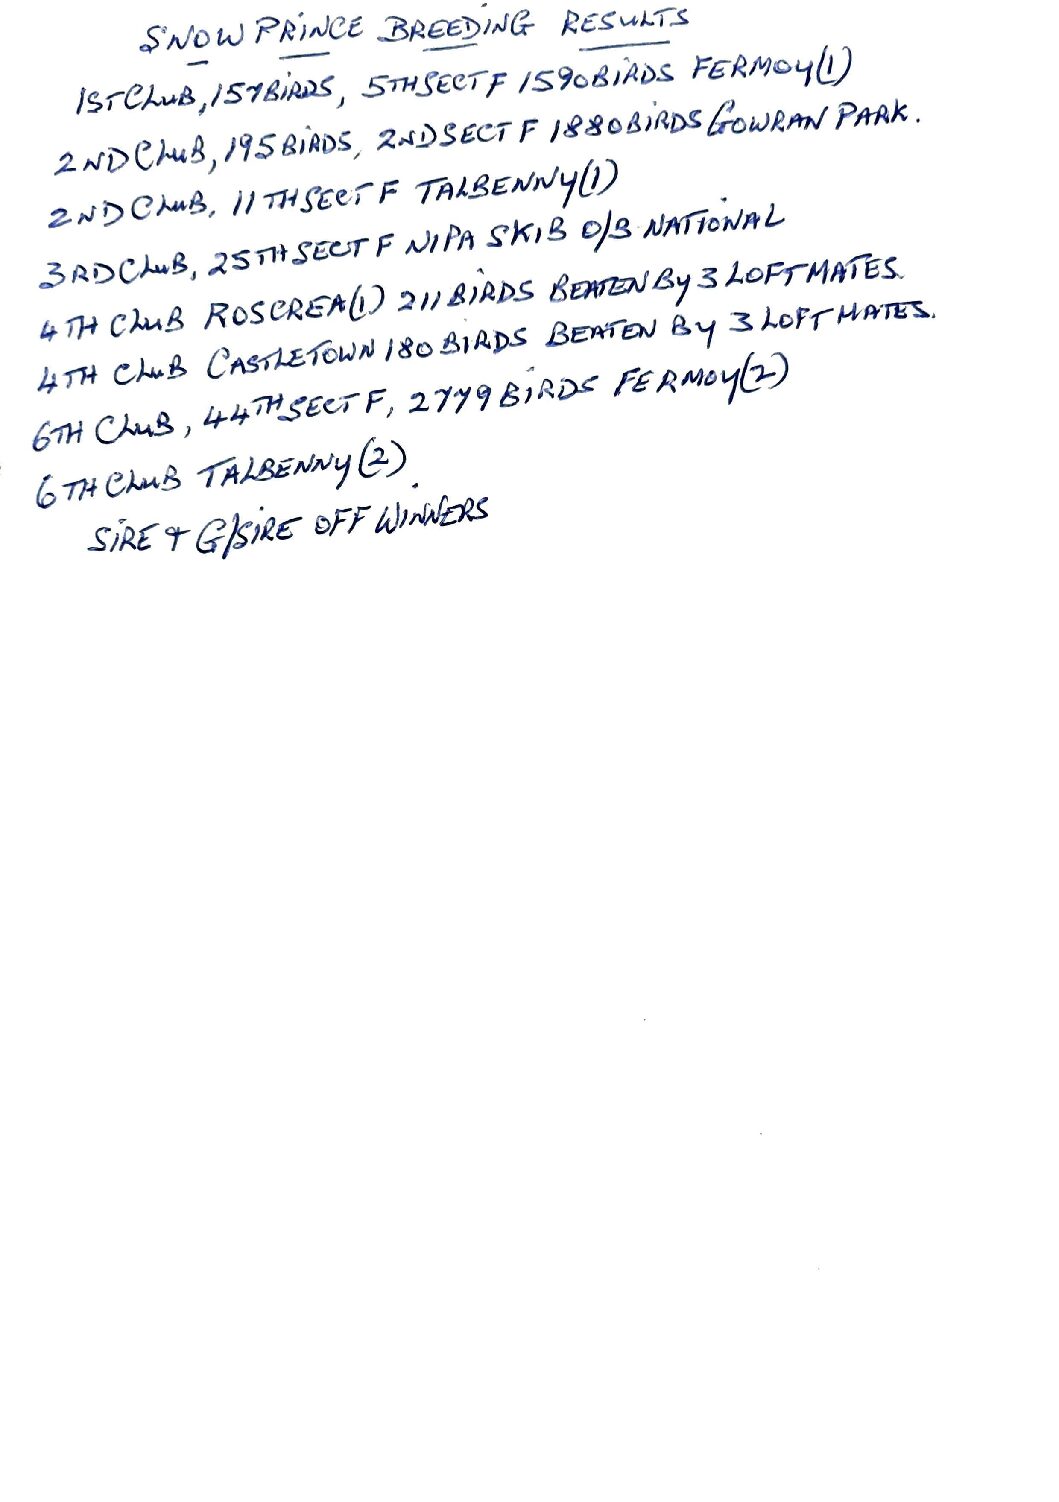 SNOW PRINCE BREEDING RESULTS
1ST CLUB, 157 BIRDS, 5TH SECT F 1590 BIRDS FERMOY (1)
2ND CLUB, 195 BIRDS, 2ND SECT F 1880 BIRDS GOWRAN PARK.
2ND CLUB, 11TH SECT F TALBENNY (1)
3RD CLUB, 25TH SECT F NIPA SKIB O/B NATIONAL
4TH CLUB ROSCREA (1) 211 BIRDS BEATEN BY 3 LOFTMATES.
4TH CLUB CASTLETOWN 180 BIRDS BEATEN BY 3 LOFTMATES.
6TH CLUB, 44TH SECT F, 2779 BIRDS FERMOY (2)
6TH CLUB TALBENNY (2)
SIRE + G/SIRE OFF WINNERS